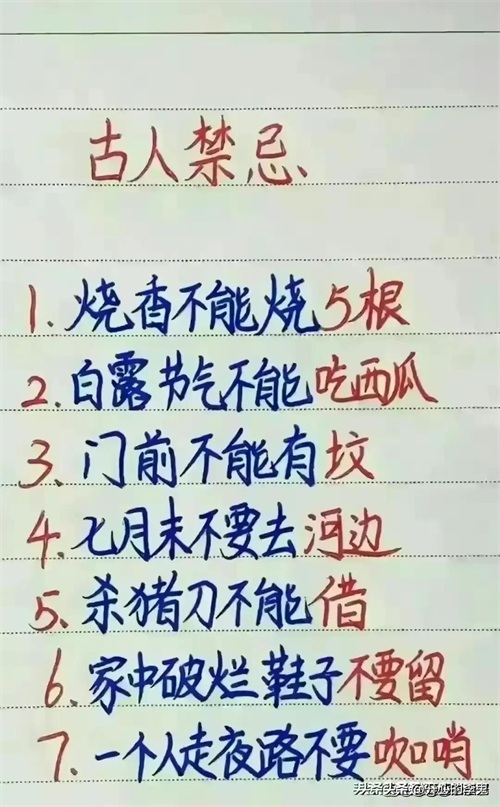 古人禁忌
1. 烧香不能烧5根
2. 白露节气不能吃西瓜
3. 门前不能有坟
4. 七月末不要去河边
5. 杀猪刀不能借
6. 家中破烂鞋子不要留
7. 一个人走夜路不要吹口哨
头条